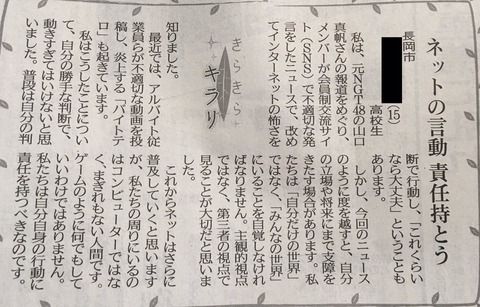 ネットの言動 責任持とう
長岡市
高校生
(15)
私は、元NGT48の山口
真帆さんの報道をめぐり、
メンバーが会員制交流サイ
ト(SNS)で不適切な発
言をしたニュースで、改め
てインターネットの怖さを
知りました。
最近では、アルバイト従
業員らが不適切な動画を投
稿し、炎上する「バイトテ
ロ」も起きています。
私はこうしたことについ
て、自分の勝手な判断で、
動きすぎてはいけないと思
いました。普段は自分の判
きらきら
キラリ
断で行動し、「これくらい
なら大丈夫」ということも
あります。
しかし、今回のニュース
のように度を越すと、自分
の立場や将来にまで支障を
きたす場合があります。私
たちは「自分だけの世界」
ではなく、「みんなの世界」
にいることを自覚しなけれ
ばなりません。主観的視点
ではなく、第三者の視点で
見ることが大切だと思いま
した。
これからネットはさらに
普及していくと思います
が、私たちの周りにいるの
はコンピューターではな
く、まぎれもない人間です。
ゲームのように何でもして
いいわけではありません。
私たちは自分自身の行動に
責任を持つべきなのです。